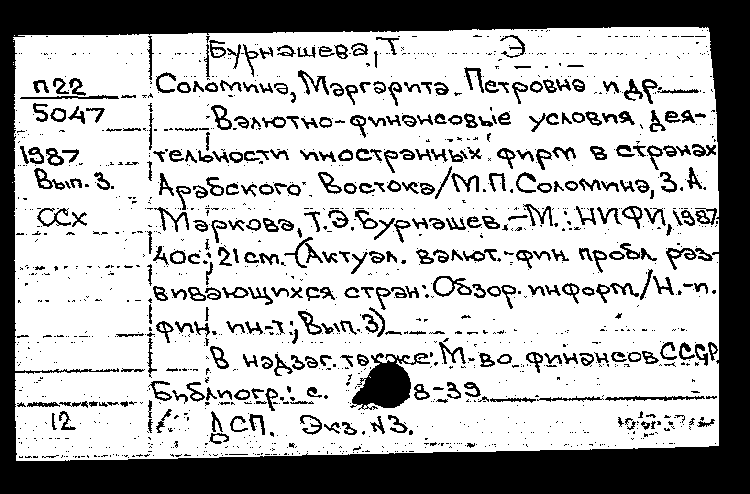 Бурнашева, Т Э
п22 Соломина, Маргарита Петровна и др
5047 Валютно-финансовые условия дея-
1987 тельности иностранных фирм в странах
Вып. 3. Арабского Востока/М.П.Соломина, З.А.
ССХ Маркова, Т.Э.Бурнашев.-М.: НИФИ, 1987
40с.; 21см.-(Актуал. валют.-фин. пробл. раз-
вивающихся стран: Обзор. информ./Н.-и.
фин. ин-т; Вып.3)
В надзаг. также: М-во финансов СССР.
Библиогр.: с. 38-39
12 ДСП. Экз. №3.